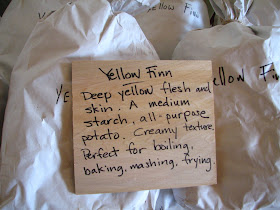 Yellow Finn
Yellow Finn
Deep yellow flesh and
skin. A medium
starch, all-purpose
potato. Creamy texture.
Perfect for boiling,
baking, mashing, frying.
Yellow Finn